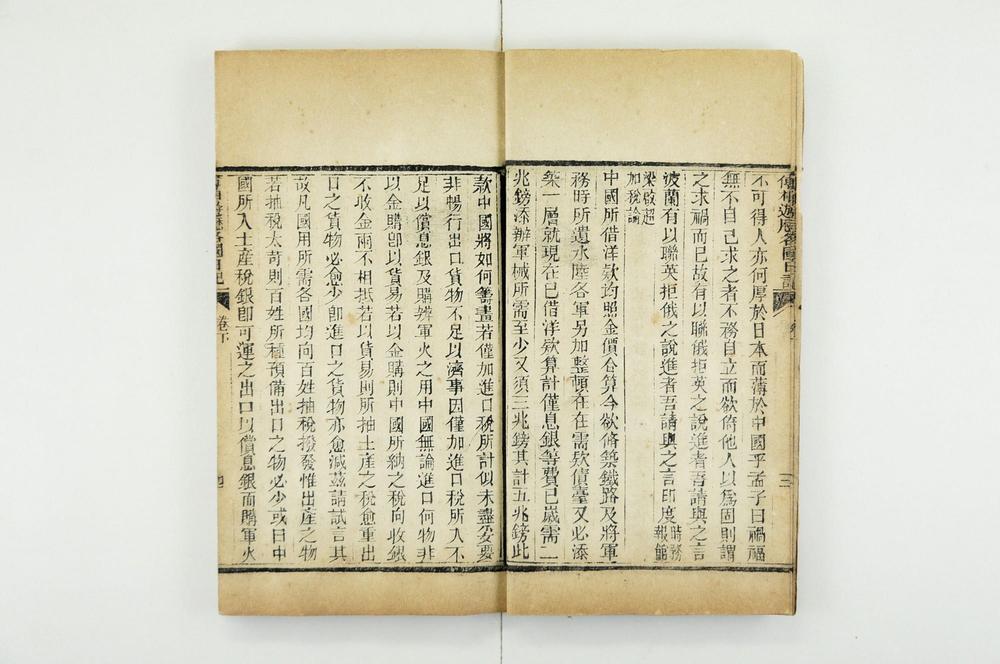 不可得人亦何厚於日本而薄於中國乎孟子曰禍福
無不自己求之者不務自立而欲倚他人以爲固則謂
之求禍而已故有以聯俄拒英之說進者吾請與之言
波蘭有以聯英拒俄之說進者吾請與之言印度時務報館
梁啟超
加稅論
中國所借洋款均照金價合算今欲脩築鐵路及將軍
務時所遺水陸各軍另加整頓在在需欵債臺又必添
築一層就現在已借洋欵算計僅息銀等費已歲需二
兆鎊添辦軍械所需至少又須三兆鎊其計五兆鎊此
三
款中國將如何籌畫若僅加進口稅所計似未盡妥要
非暢行出口貨物不足以濟事因僅加進口稅所入不
足以償息銀及購辦軍火之用中國無論進口何物非
以金購卽以貨易若以金購則中國所納之稅向收銀
不收金兩不相抵若以貨易則所抽土產之稅愈重出
口之貨物必愈少卽進口之貨物亦愈減茲請試言其
故凡國用所需各國均向百姓抽稅撥發惟出產之物
若抽稅太苛則百姓所種預備出口之物必少或曰中
國所入土產稅銀卽可運之出口以償息銀而購軍火
卷下
四